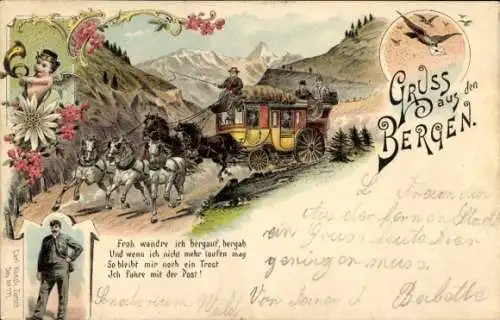 GRUSS
aus den
BERGEN.
Froh wandre ich bergauf, bergab
Und wenn ich nicht mehr laufen mag
So bleibt mir noch ein Trost
Ich fahre mit der Post!
Aus der fernen Stadt
ein Gruss
genügen muss.
Sanatorium Wald Von
Babette